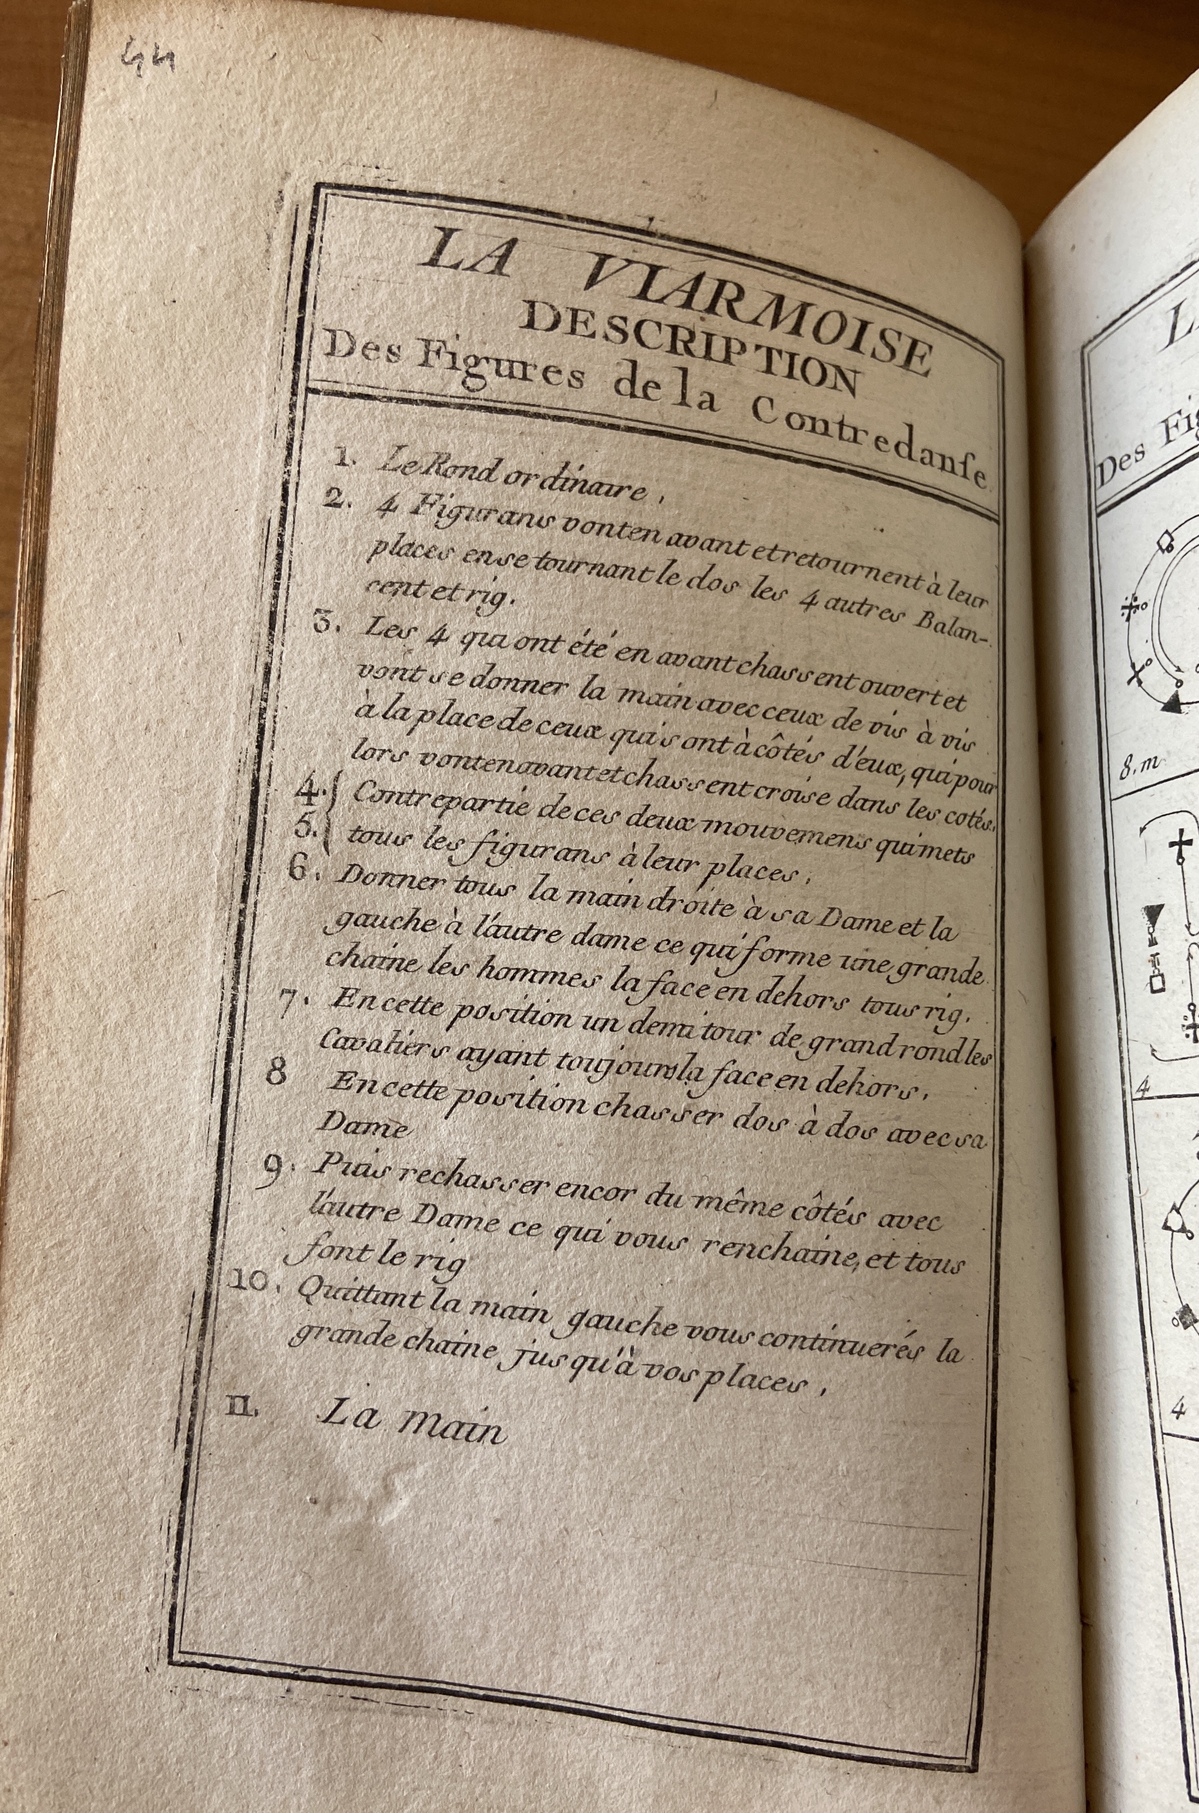 44
LA VIARMOISE
DESCRIPTION
Des Figures de la Contredanſe
1. Le Rond ordinaire,
2. 4 Figurans vont en avant et retournent à leur
places en se tournant le dos les 4 autres Balan-
cent et rig.
3. Les 4 qui ont été en avant chassent ouvert et
vont se donner la main avec ceux de vis à vis
à la place de ceux qui sont à côtés d'eux, qui pour
lors vont en avant et chassent croise dans les cotés.
4. Contrepartie de ces deux mouvemens qui mets
5. tous les figurans à leur places,
6. Donner tous la main droite à sa Dame et la
gauche à l'autre dame ce qui forme une grande
chaine les hommes la face en dehors tous rig.
7. En cette position un demi tour de grand rond les
Cavaliers ayant toujours la face en dehors,
8 En cette position chasser dos à dos avec sa
Dame
9. Puis rechasser encor du même côtés avec
l'autre Dame ce qui vous renchaine, et tous
font le rig
10. Quittant la main gauche vous continuerés la
grande chaine jusqu'à vos places,
11. La main
Des Fig
8. m
4
4